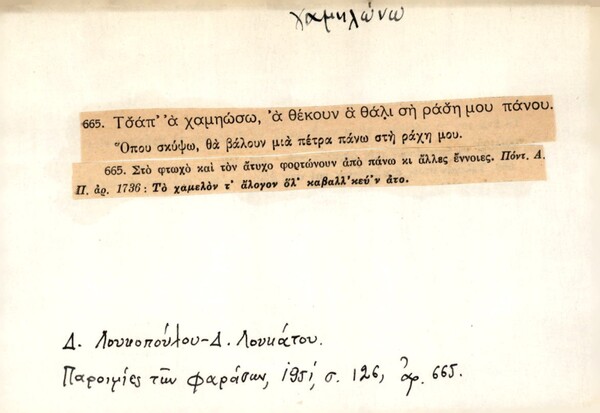 χαμηλώνω
665. Τσ̌άπ' 'ὰ χαμηώσω, 'ὰ θέκουν ἂ θάλι σὴ ράσ̌η μου πάνου.
Ὅπου σκύψω, θὰ βάλουν μιὰ πέτρα πάνω στὴ ράχη μου.
665. Στὸ φτωχὸ καὶ τὸν ἄτυχο φορτώνουν ἀπὸ πάνω κι ἄλλες ἔννοιες. Πόντ. Α.
Π. ἀρ. 1736 : Τὸ χαμελὸν τ' ἄλογον ὅλ' καβαλλ'κεύ'ν ἀτο.
Δ. Λουκοπούλου-Δ. Λουκάτου.
Παροιμίες τῶν Φαράσων, 1951, σ. 126, ἀρ. 665.